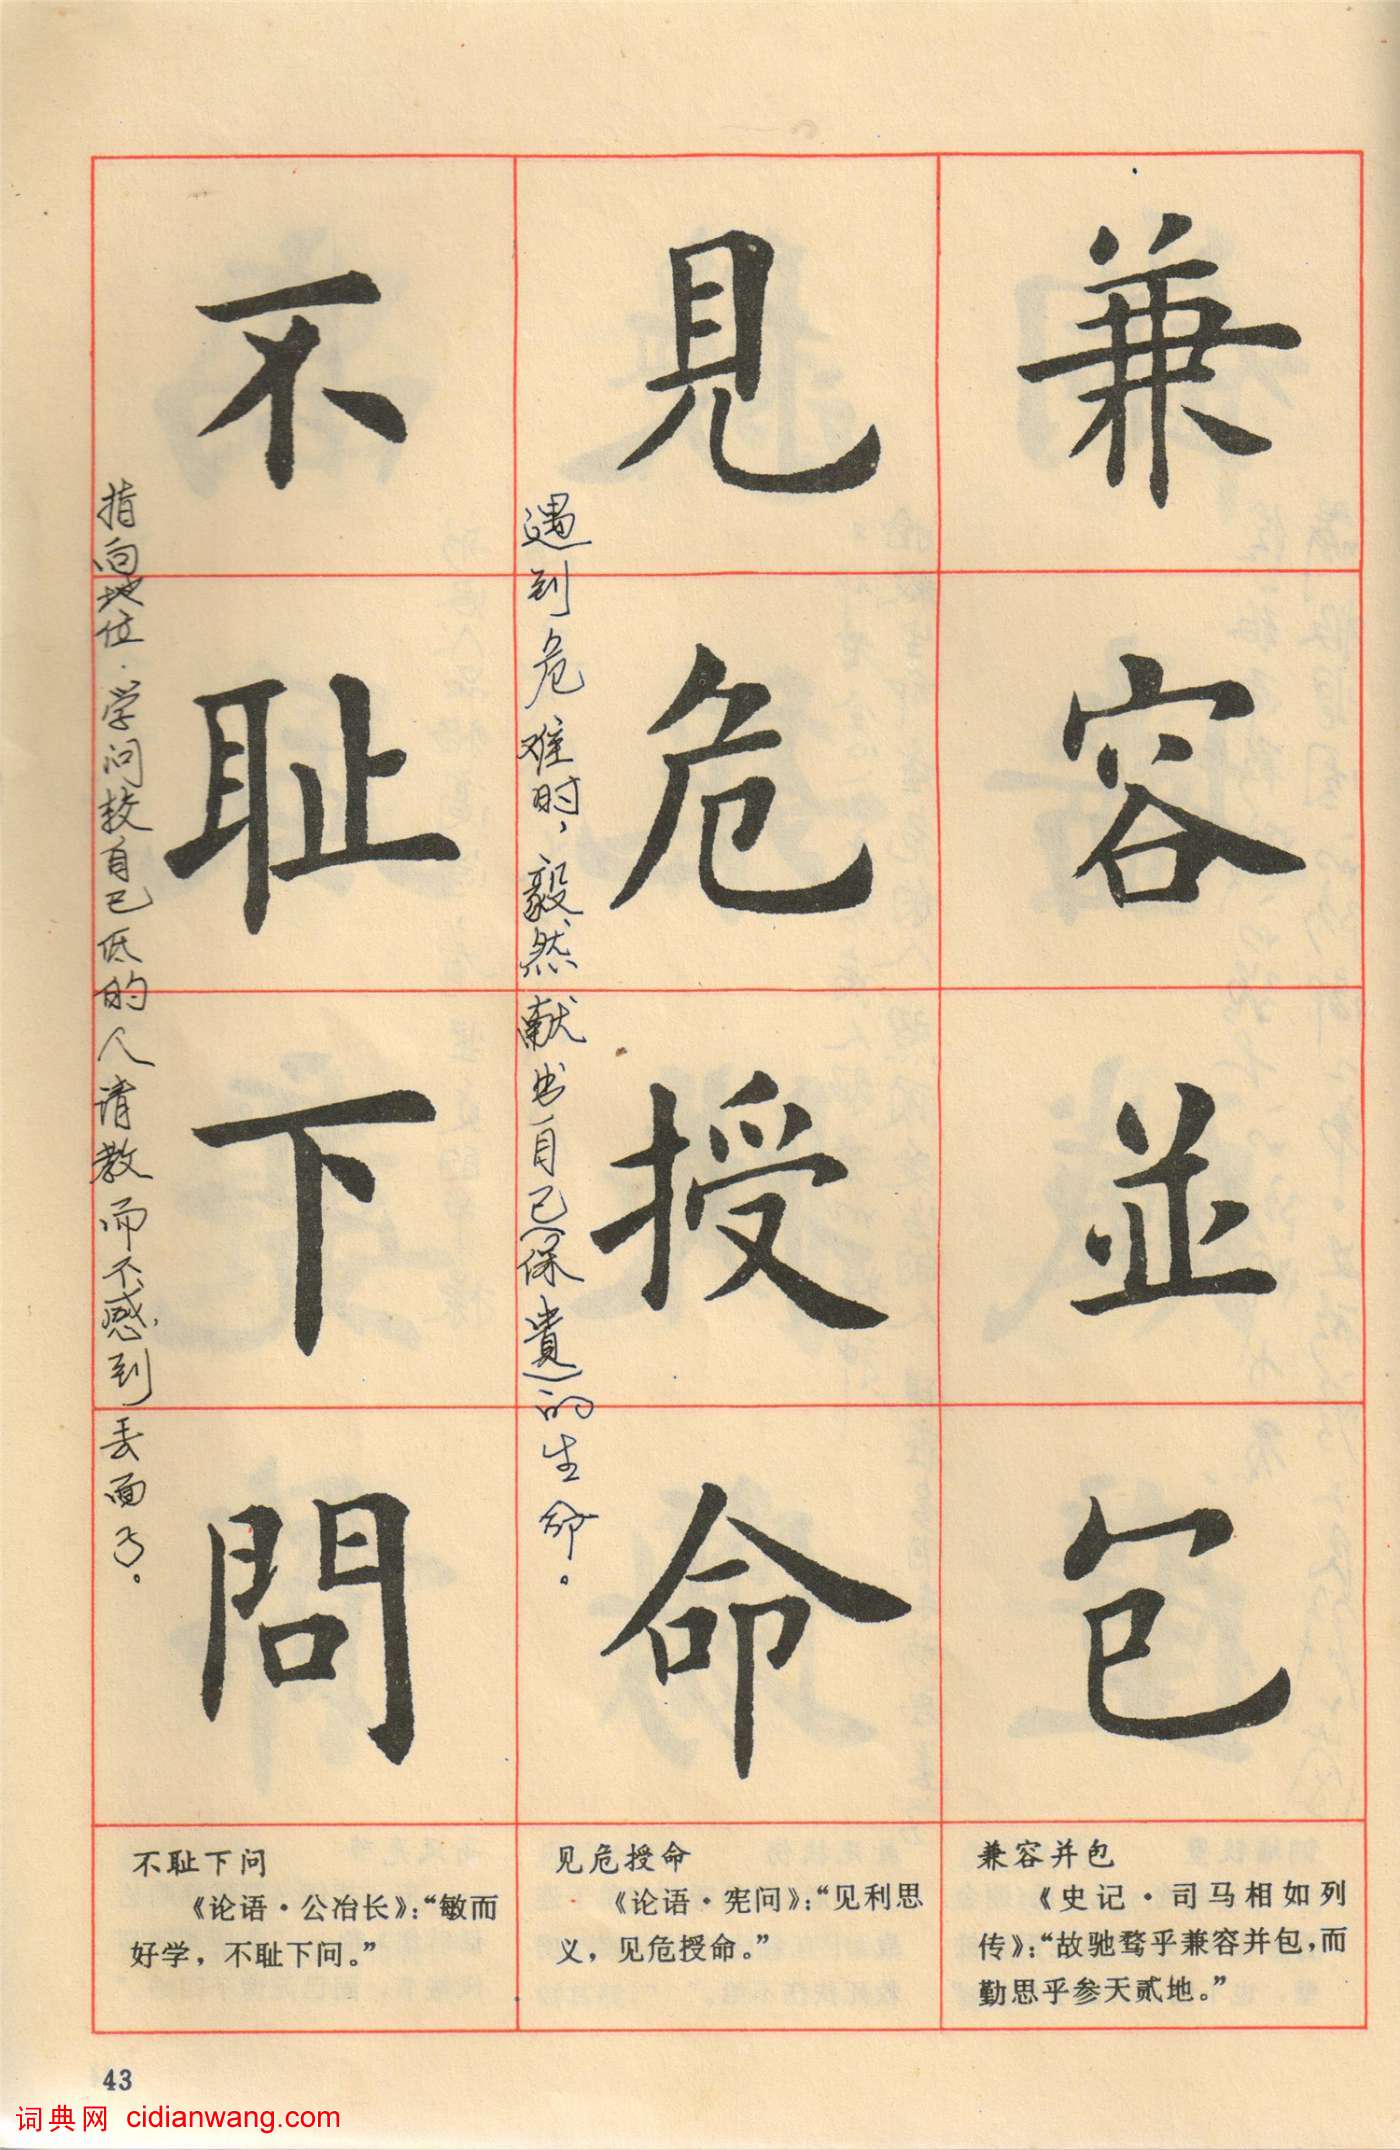 兼容並包
見危授命
遇到危难时，毅然献出自己(保貴)的生命。
不耻下問
指向地位·学问较自己低的人请教而不感到丢面子。
兼容并包
《史记·司马相如列
传》：“故驰骛乎兼容并包，而
勤思乎参天贰地。”
见危授命
《论语·宪问》：“见利思
义，见危授命。”
不耻下问
《论语·公冶长》：“敏而
好学，不耻下问。”
43
词典网 cidianwang.com